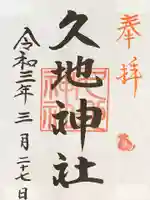 奉拝
久地神社
令和三年三月二十七日